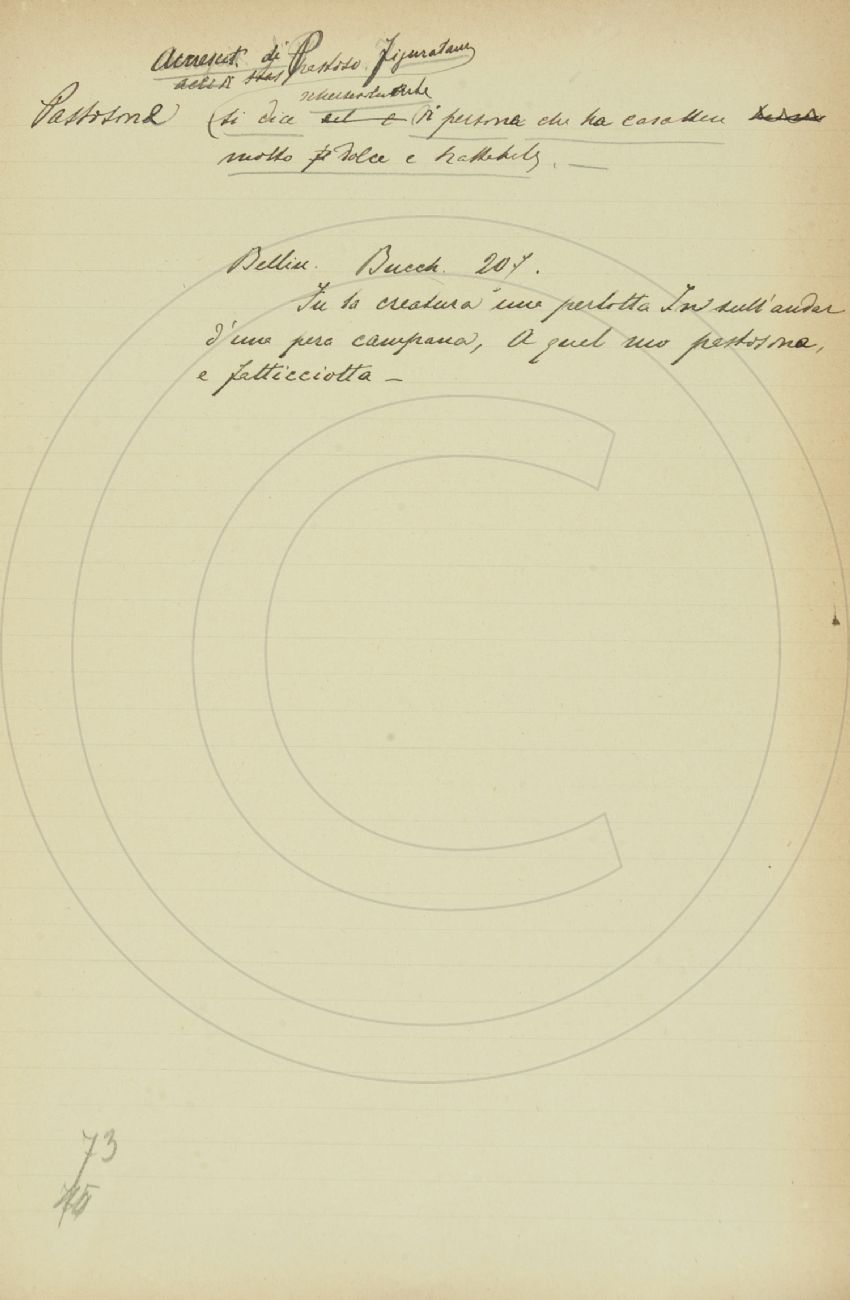 Accrescit. di Pastoso. Figuratam
scherzevolmente
Pastosona (si dice del e di persona che ha carattere
molto dolce e trattabile. —
Bellin. Bucch. 207.
Fu la creatura une perlotta In sull'andar
d'una pera campana, A quel mo pastosona,
e fatticciotta —
73
75